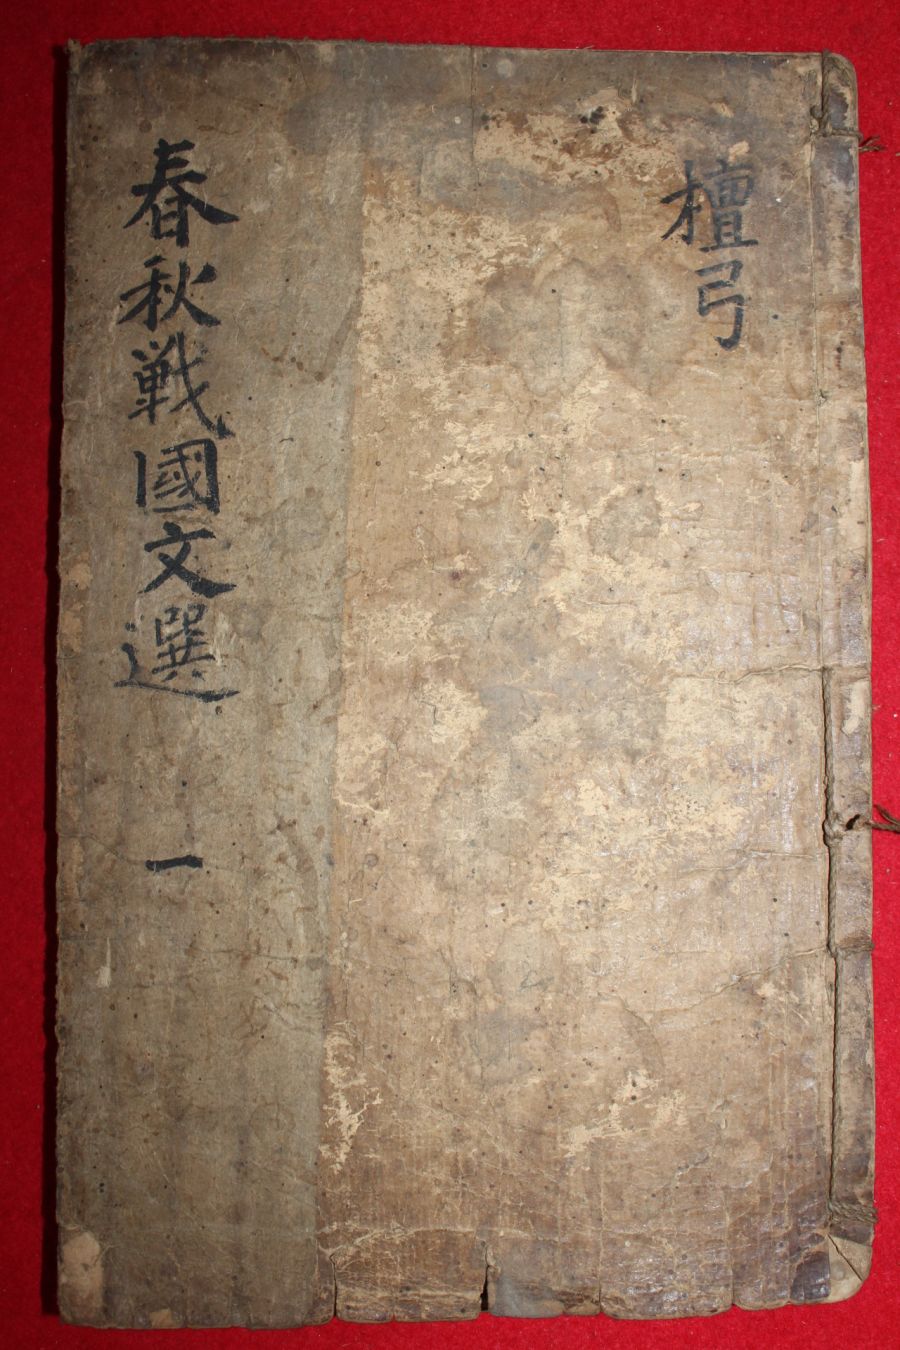 檀弓
春秋戰國文選 一